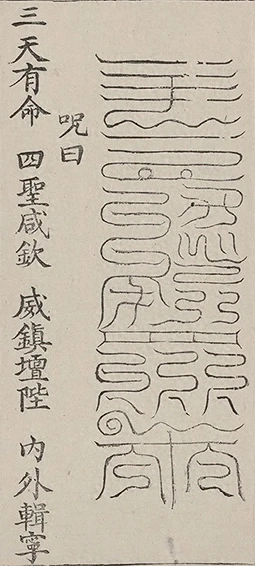 呪曰
三天有命 四聖咸欽 威鎮壇陛 內外輯寧